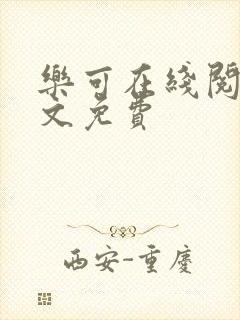 樂可在綫閱
文免費
西安-重慶